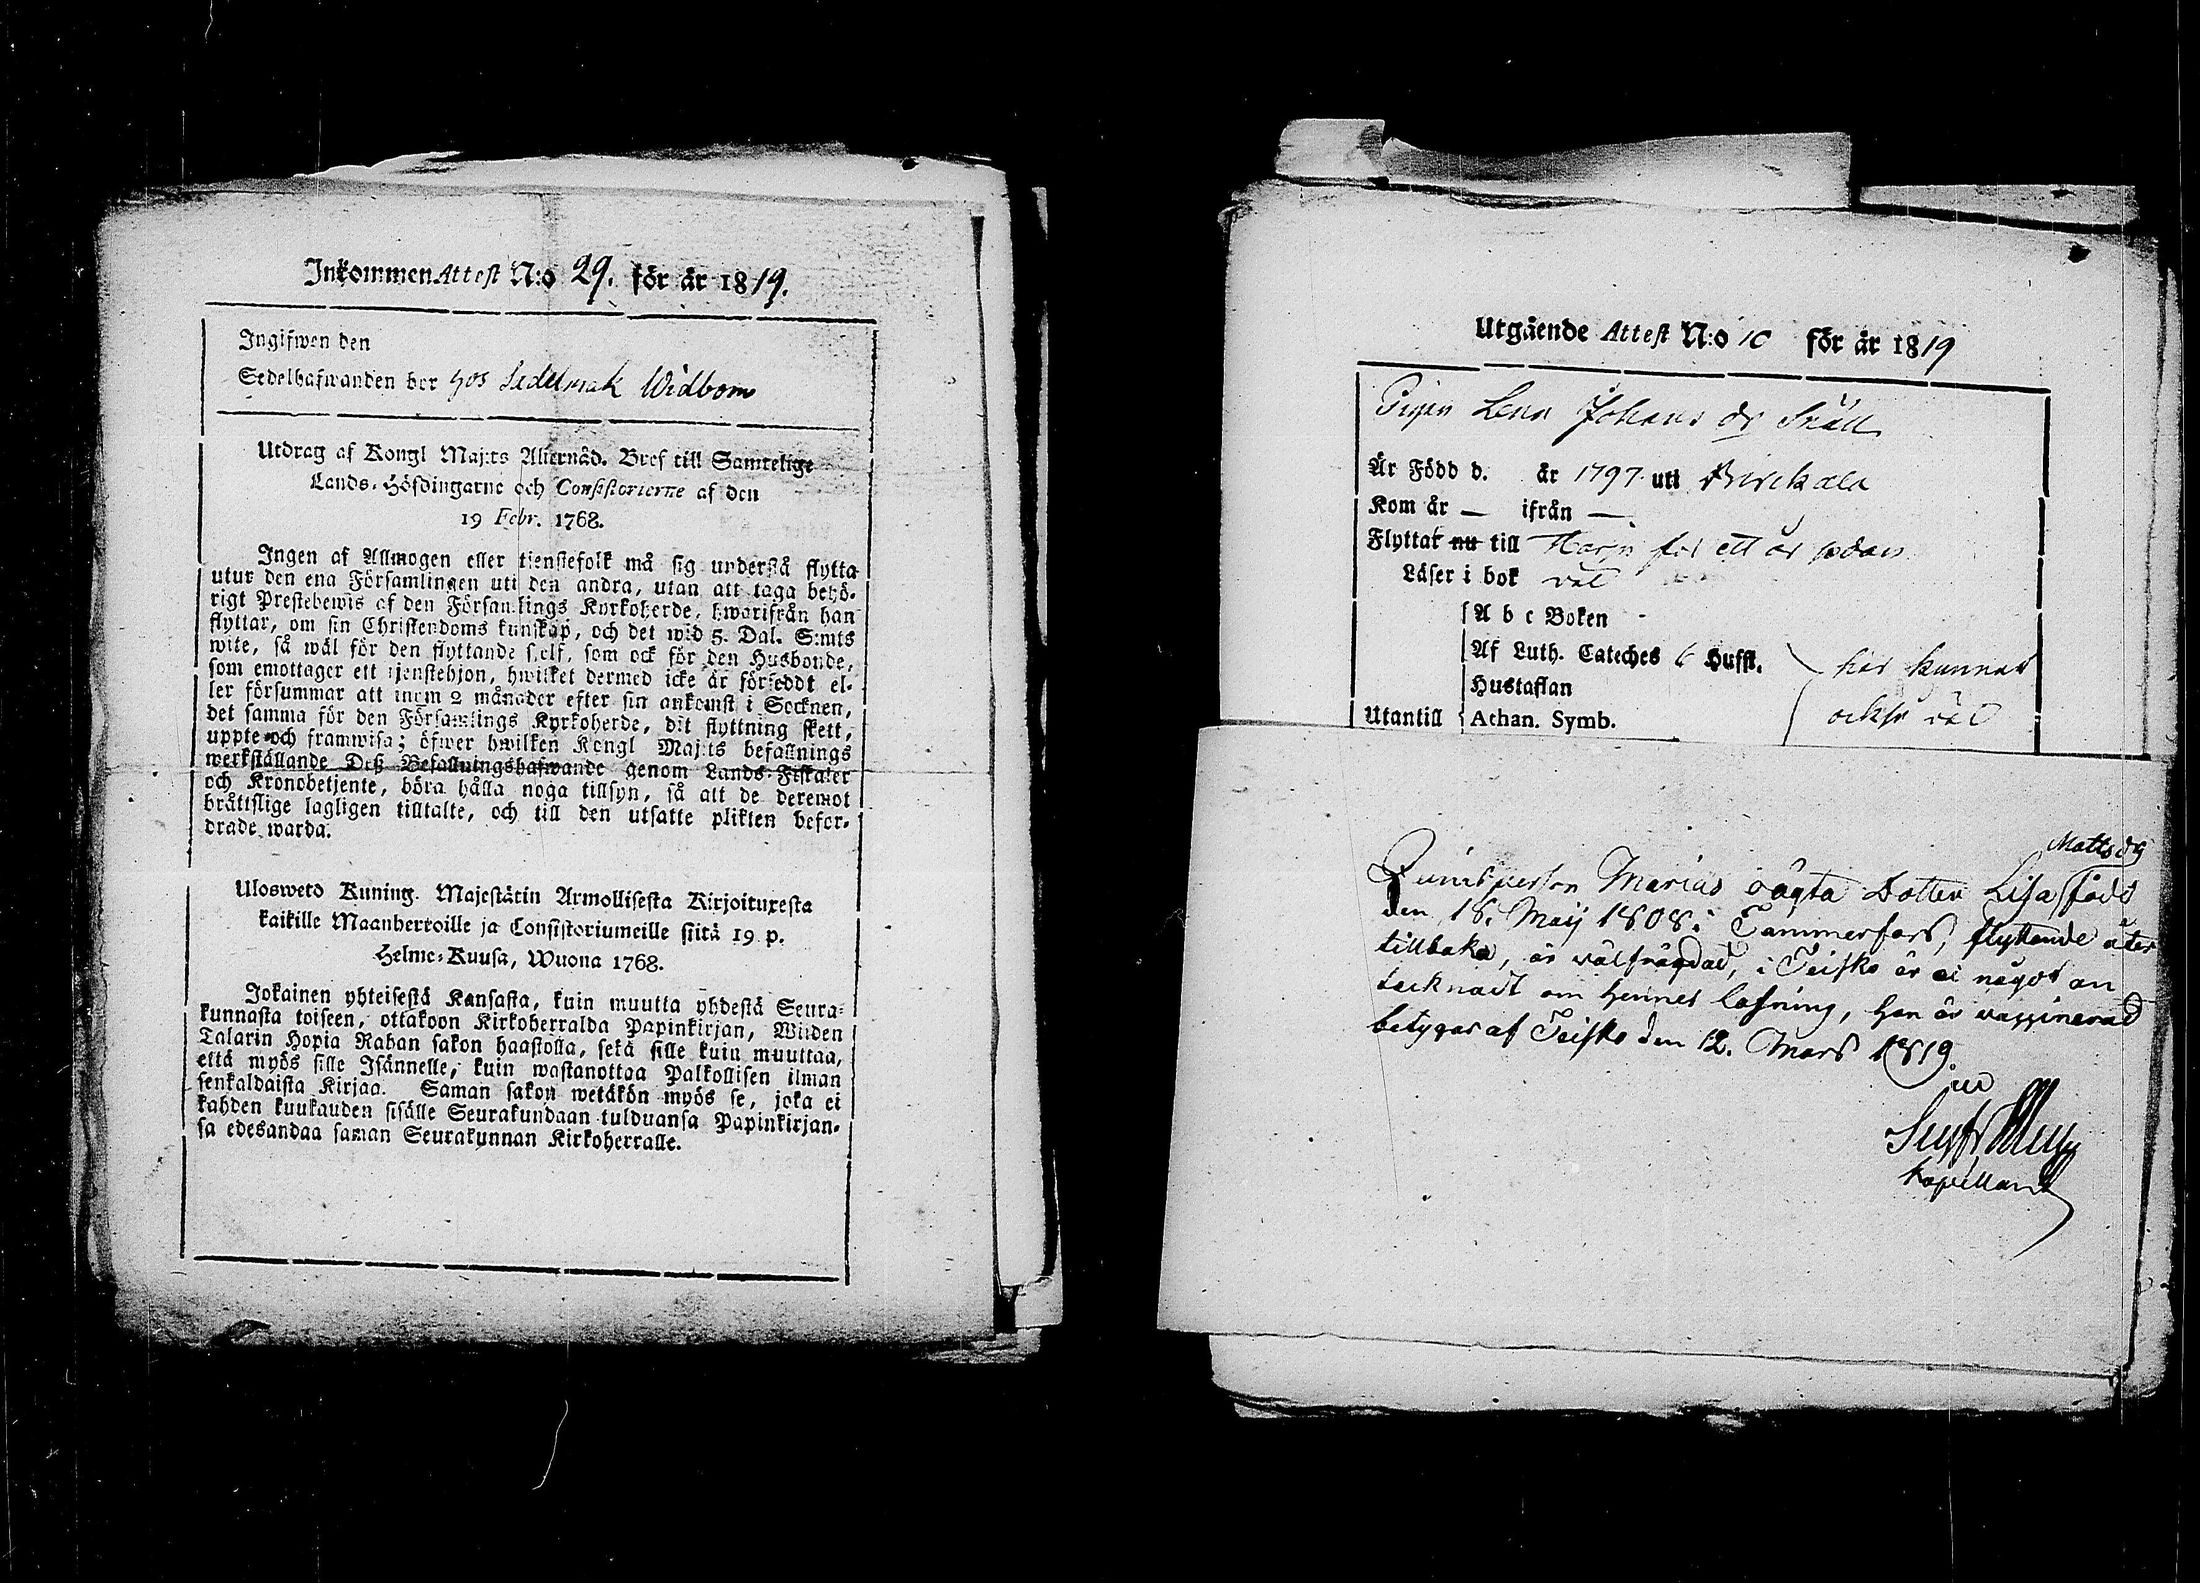 Inkommen Attest N:o 29. för år 1819.
Ingifwen den
Sedelhafwanden bor hos Sadelmak Widbom
Utdrag af Kongl Maj:ts Allernåd. Bref till Samtelige
Lands-Höfdingarne och Consistorierne af den
19 Febr. 1768.
Ingen af Allmogen eller tjenstefolk må sig understå flytta
utur den ena Församlingen uti den andra, utan att taga behö-
rigt Prestebewis af den Församlings Kyrkoherde, hwarifrån han
flyttar, om sin Christendoms kunskap, och det wid 5. Dal. S:mts
wite, så wäl för den flyttande sielf, som ock för den Husbonde,
som emottager ett tjenstehjon, hwilket dermed icke är försedt el-
ler försummar att inom 2 månader efter sin ankomst i Socknen,
det samma för den Församlings Kyrkoherde, dit flyttning skett,
uppte och framwisa; öfwer hwilken Kongl Maj:ts befallnings
werkställande Deß Befallningshafwande genom Lands-Fiskaler
och Kronobetjente, böra hålla noga tillsyn, så att de deremot
bråttslige lagligen tilltalte, och till den utsatte plikten befor-
drade warda.
Uloswetd Kuning. Majestätin Armollisesta Kirjoituxesta
kaikille Maanherroille ja Consistoriumeille siitä 19 p.
Helme-Kuusa, Wuona 1768.
Jokainen yhteisestä Kansasta, kuin muutta yhdestä Seura-
kunnasta toiseen, ottakoon Kirkoherralda Papinkirjan, Wiiden
Talarin Hopia Rahan sakon haastolla, sekä sille kuin muuttaa,
että myös sille Isännelle, kuin wastanottaa Palkollisen ilman
senkaldaista Kirjaa. Saman sakon wetäkön myös se, joka ei
kahden kuukauden sisälle Seurakundaan tulduansa Papinkirjan-
sa edesandaa saman Seurakunnan Kirkoherralle.
Utgående Attest N:o 10 för år 1819
Pigan Lena Johans dr Snäll
Är Född d. år 1797 uti Birckala
Kom år — ifrån —
Flyttar nu till för ett år sedan
Läser i bok väl
A b c Boken -
Af Luth. Cateches 6 Huffst.
Hustaflan
Utantill Athan. Symb.
här kunnat
också väl
Matts dr
Qwinsperson Marias oägta Dotter Lisa född
den 18. Maij 1808 i Tammerfors, flyttande åter
tillbaka, är välfrägdad, i Teisko är ei något an
tecknadt om hennes läsning, hon är vaccinerad
betygas af Teisko den 12. Mars 1819.
Kapellan